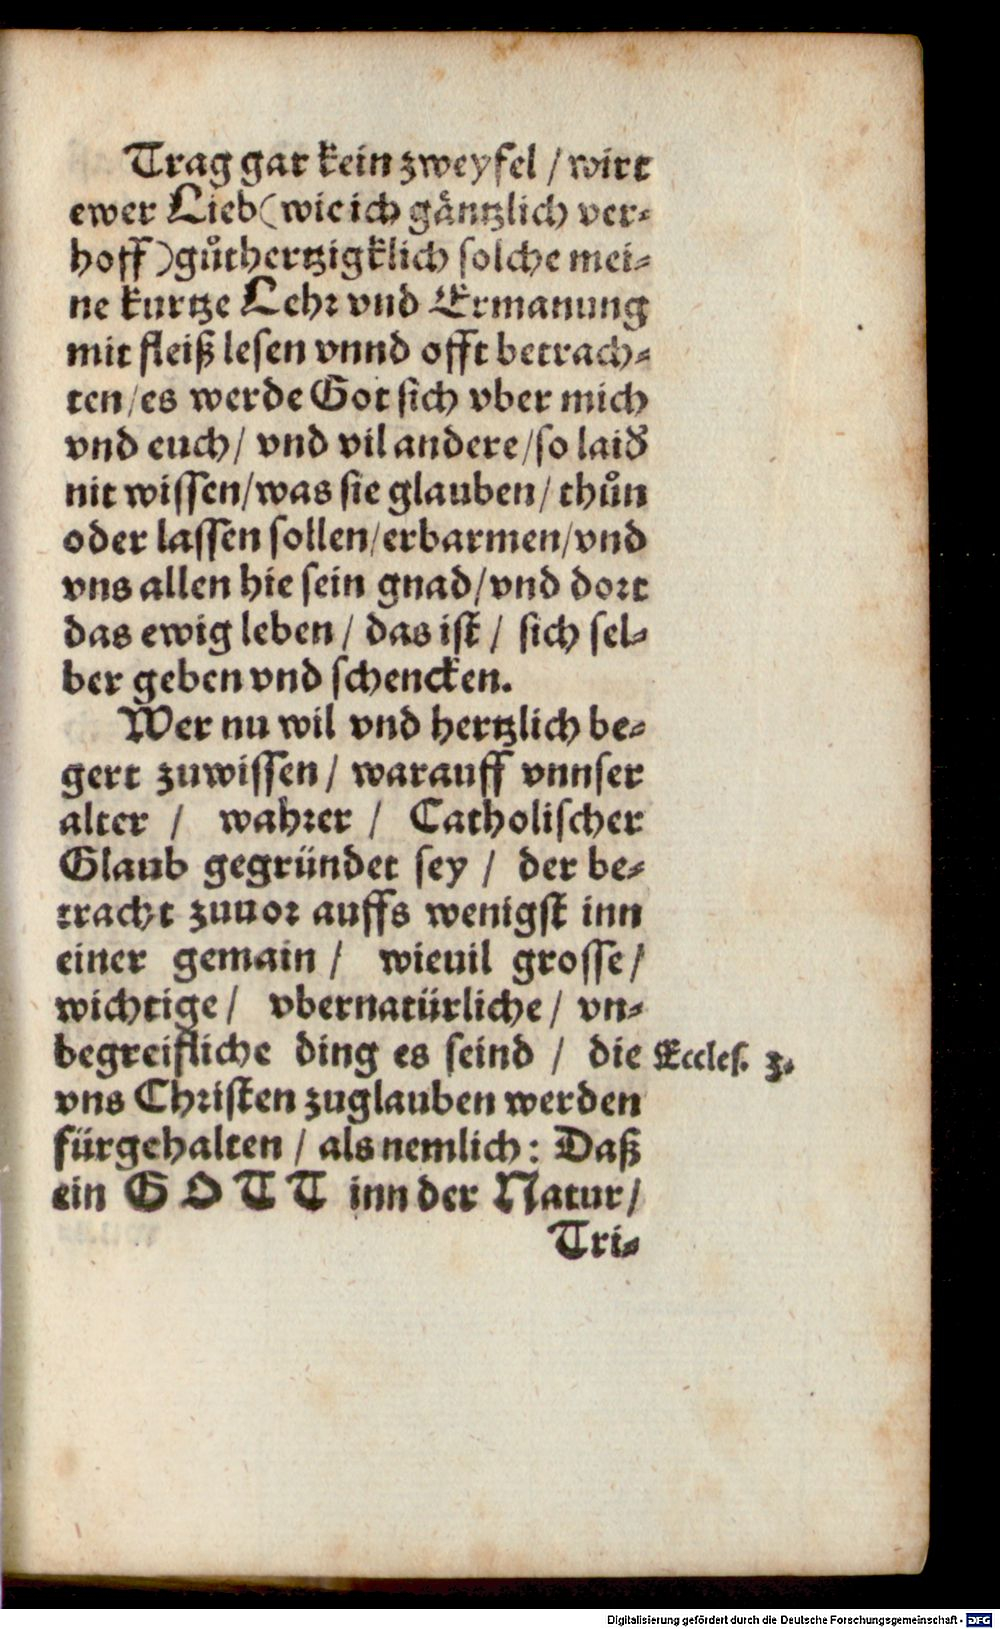 Trag gar kein zweyfel / wirt
ewer Lieb (wie ich gäntzlich ver-
hoff) gůthertzigklich solche mei-
ne kurtze Lehr vnd Ermanung
mit fleiß lesen vnnd offt betrach-
ten / es werde Got sich vber mich
vnd euch / vnd vil andere / so laid
nit wissen / was sie glauben / thůn
oder lassen sollen / erbarmen / vnd
vns allen hie sein gnad / vnd dort
das ewig leben / das ist / sich sel-
ber geben vnd schencken.
Wer nu wil vnd hertzlich be-
gert zuwissen / warauff vnnser
alter / wahrer / Catholischer
Glaub gegründet sey / der be-
tracht zuuor auffs wenigst inn
einer gemain / wieuil grosse /
wichtige / vbernatürliche / vn-
begreifliche ding es seind / die
Eccles. 3.
vns Christen zuglauben werden
fürgehalten / als nemlich: Daß
ein GOTT inn der Natur /
Tri-
Digitalisierung gefördert durch die Deutsche Forschungsgemeinschaft - DFG